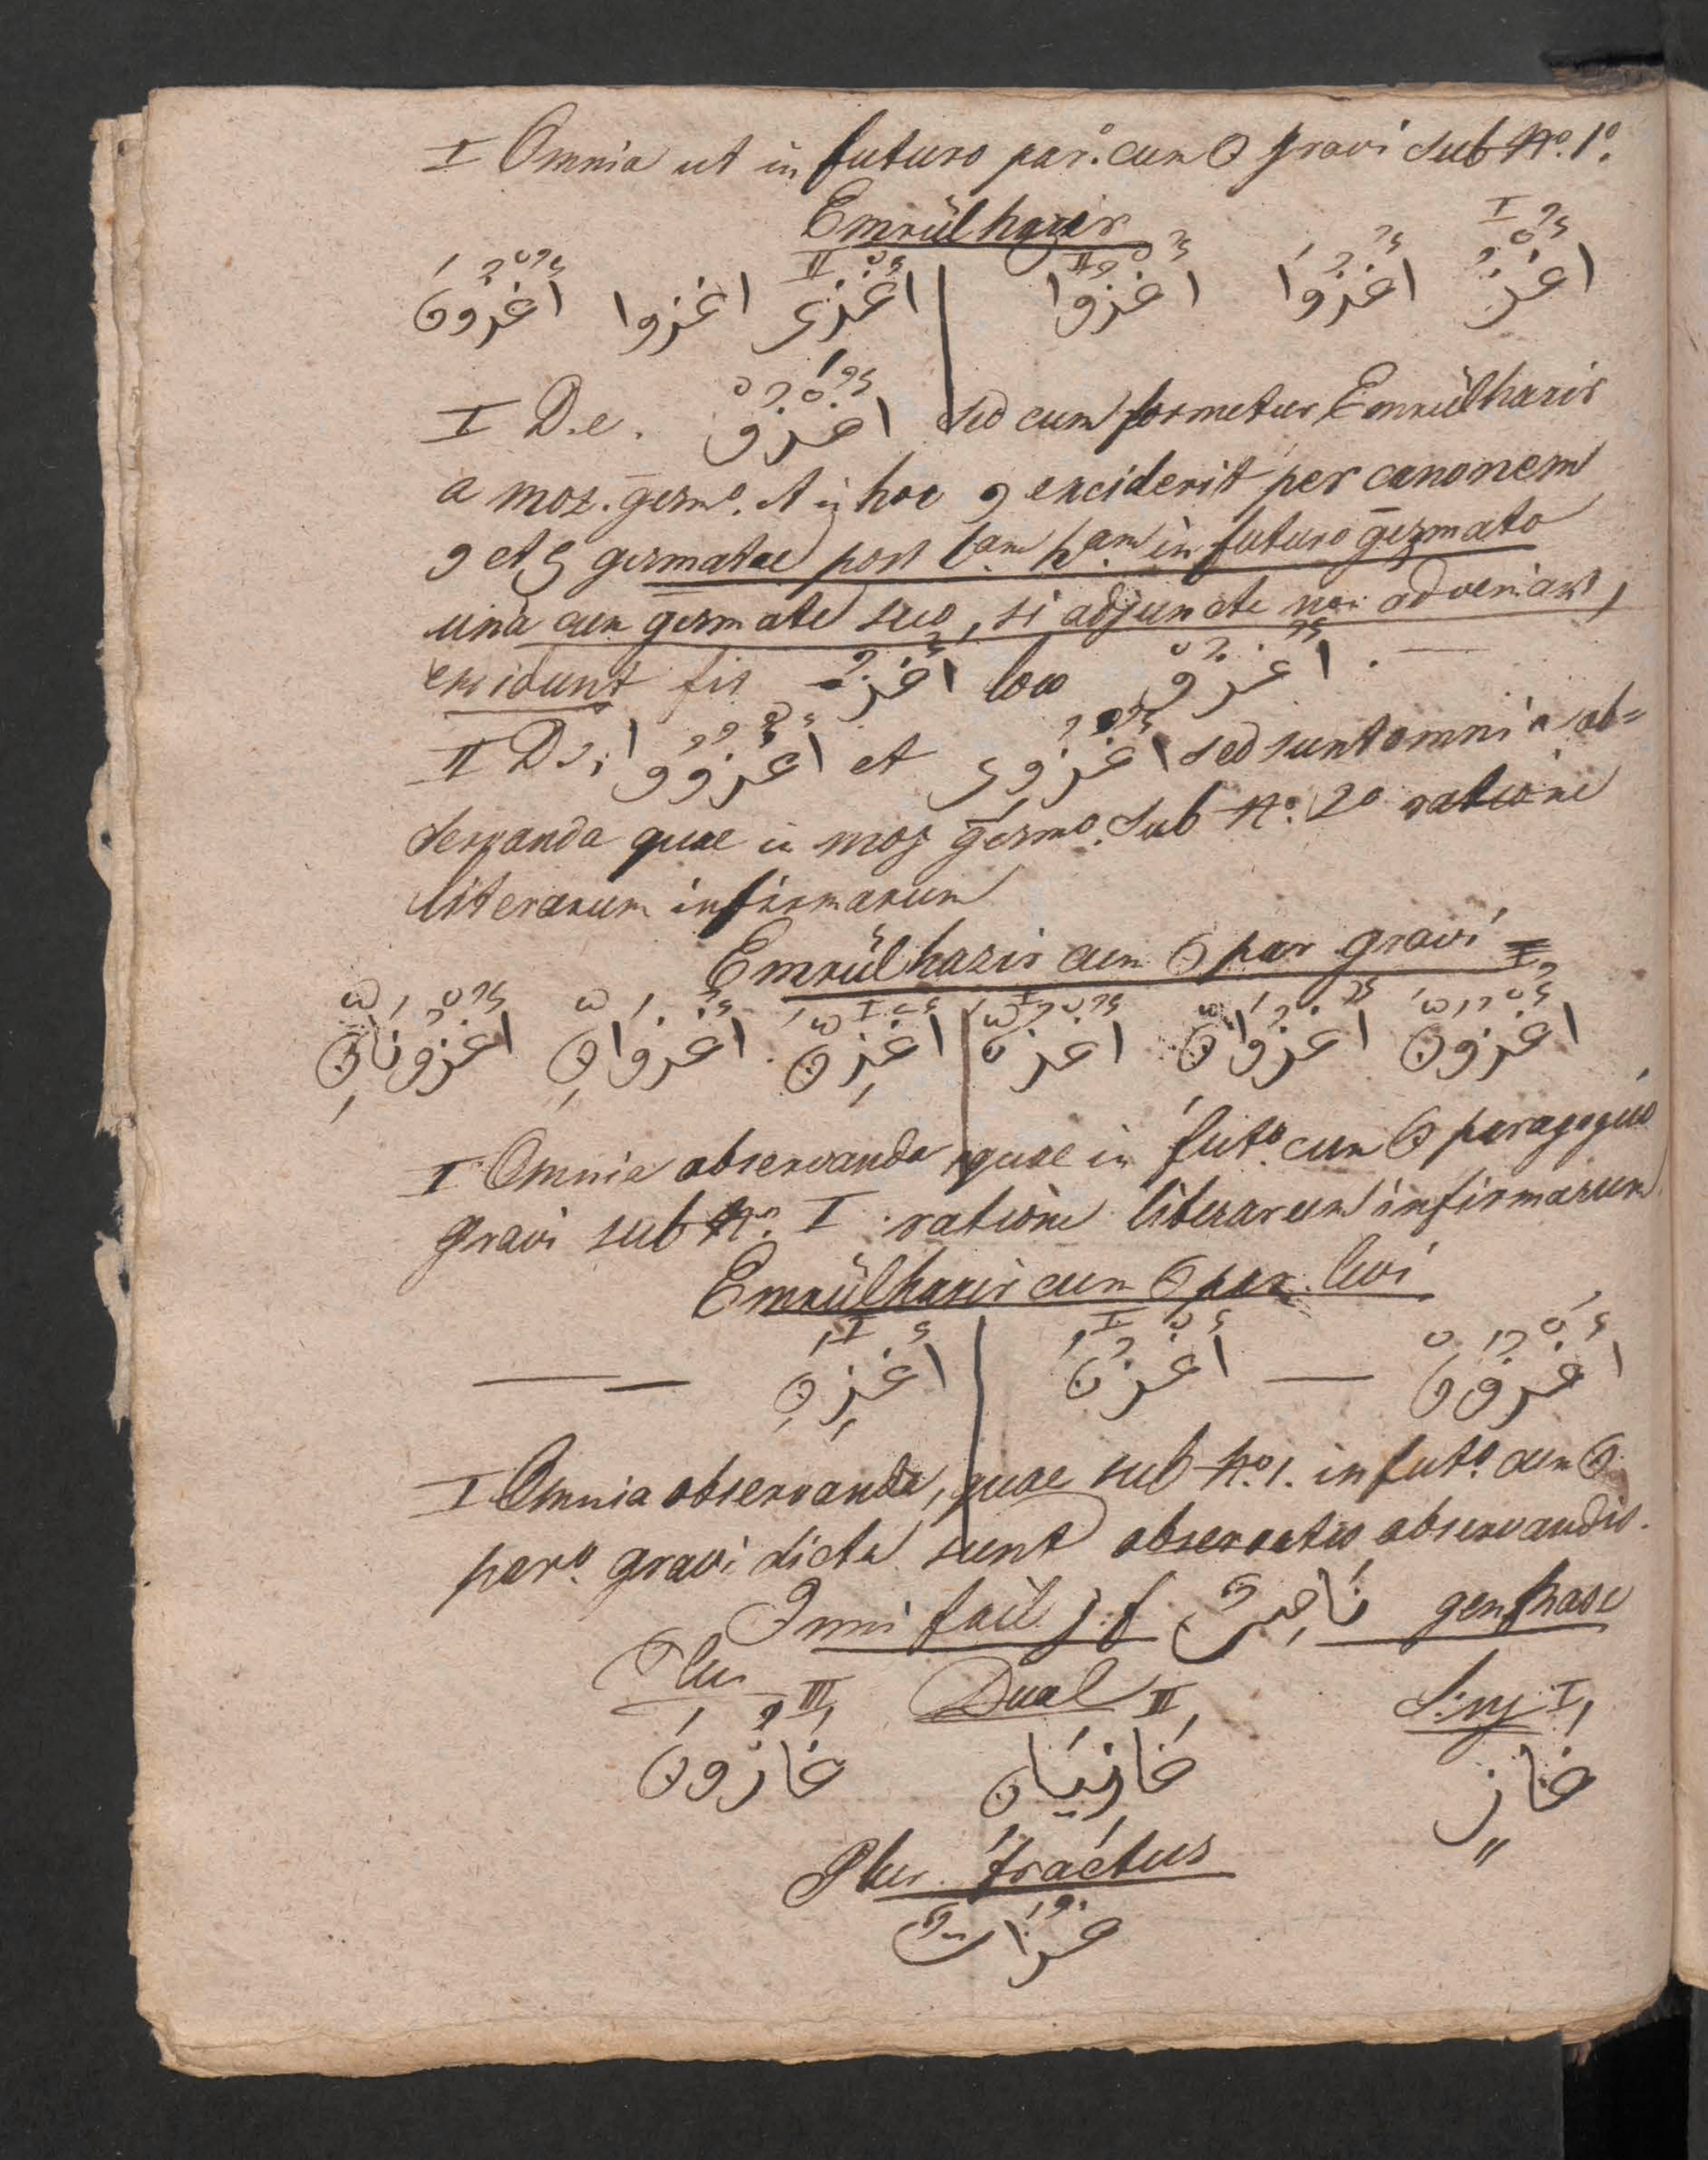 I Omnia ut in futuro par.º cum ن gravi sub Nº. 1º.
Emrülhazir
I
اُغْزُ اُغْزُوَا اُغْزُوا II | اُغْزِى II اغزوا اُغْزُونَ
I D.e. اُغْزُوْ sed cum formetur Emrülhazir
a moz. gezmº. et in hoc و exciderit per canonem
و et ى gezmatae post tam ham in futuro gezmato
una cum gezmate suo, si adjuncta non adveniant,
excidunt fit اُغْزُ loco اُغْزُوْ.
II D.s; اُغْزُوُوا et اُغْزُوِى sed sunt omnia ob=
servanda quae in moz gezmº. sub Nº. 2º ratione
literarum infirmarum
Emrülhazir cum ن par gravi
اُغْزُوَنَّ اُغْزُوَانِّ اُغْزُنَّ I | اُغْزِنَّ I اُغْزُوَانِّ اُغْزُونَانِّ
I Omnia observanda quae in futº. cum ن paragogico
gravi sub Nº. I ratione literarum infirmarum
Emrülhazir cum ن par. levi
اُغْزُوَنْ — اُغْزُنْ I | اُغْزِنْ I — —
I Omnia observanda, quae sub Nº. 1. in futº. cum ن
parº. gravi dicta sunt observatis observandis.
Ismi fail نَاصِرٌ
Sing I Dual II Plur III
غَازٍ غَازِيَانِ غَازُونَ
Plur. fractus
غُزَاتٌ